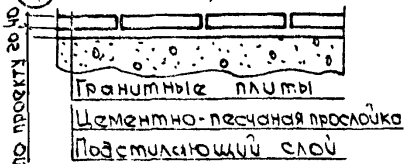 по проекту 20 40
Гранитные плиты
Цементно-песчаная прослойка
Подстилающий слой